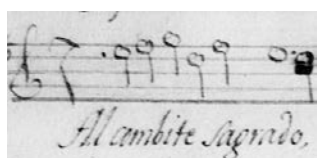 All combite sagrado,